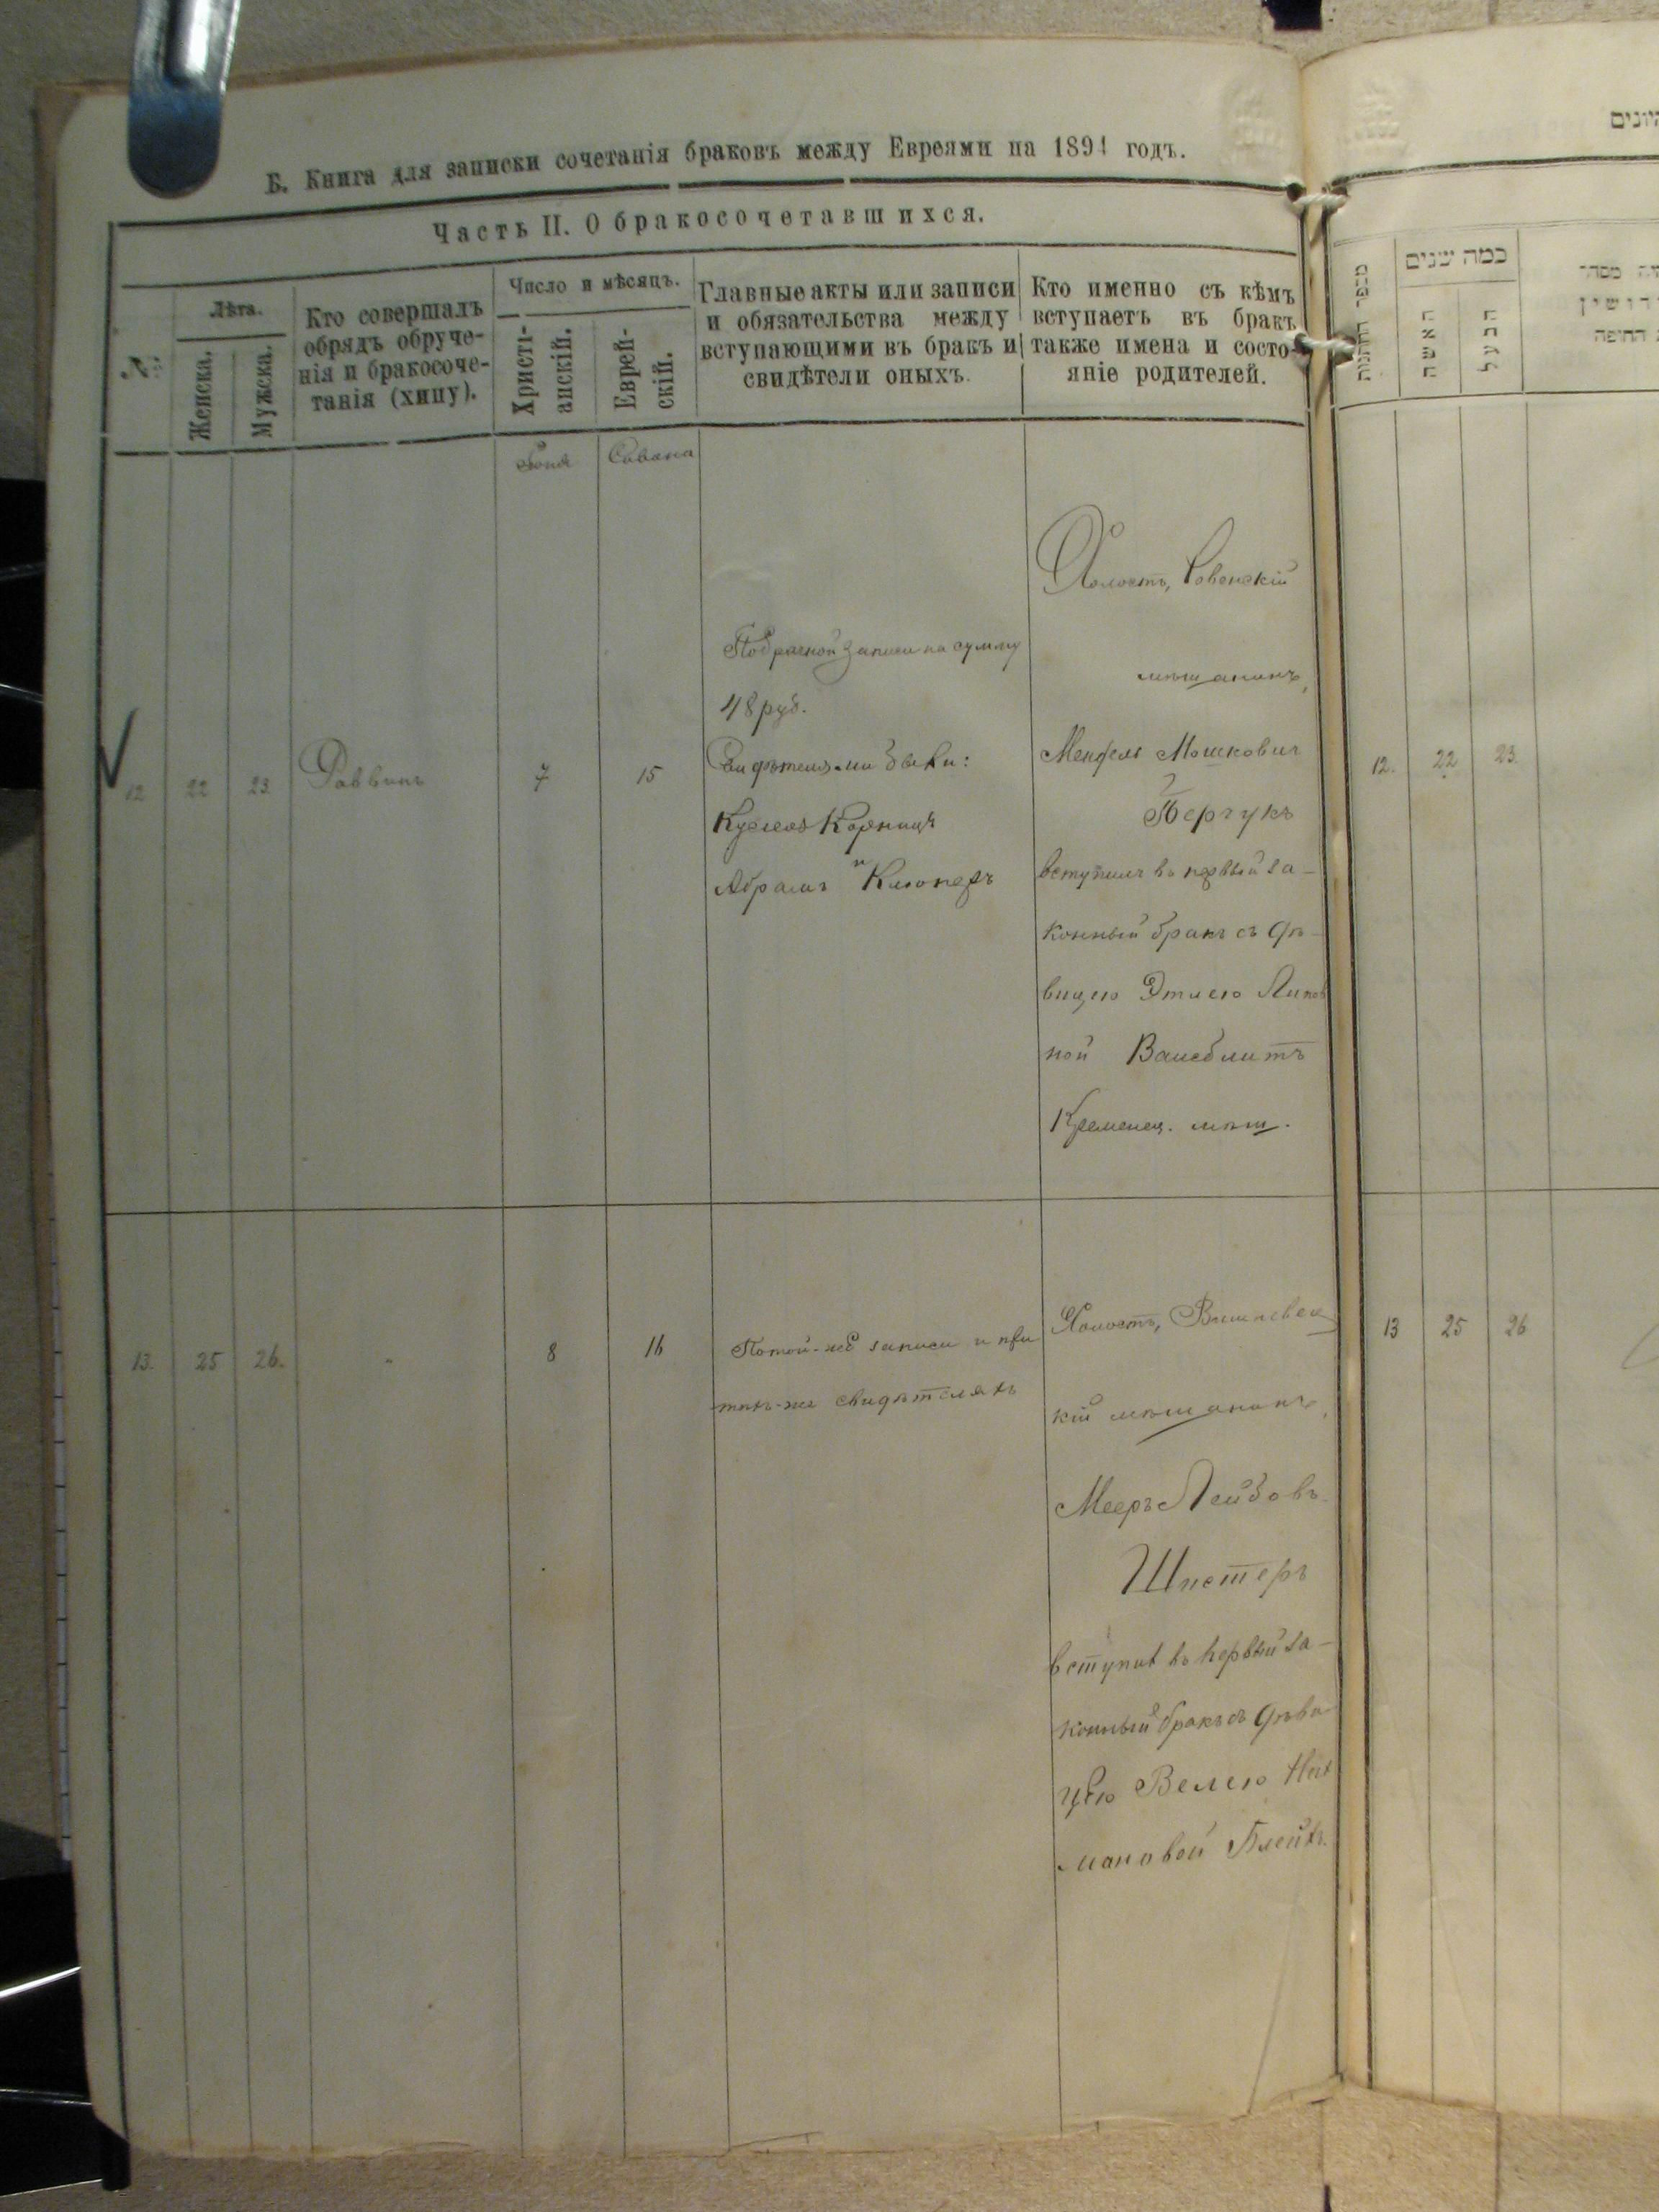 Б. Книга для записки сочетанія браковъ между Евреями на 1891 годъ.
Часть II. О бракосочетавшихся.
№
Лѣта.
Женска.
Мужска.
Кто совершалъ
обрядъ обруче-
нія и бракосоче-
танія (хипу).
Число и мѣсяцъ.
Христі-
анскій.
Еврей-
скій.
Главные акты или записи
и обязательства между
вступающими въ бракъ и
свидѣтели оныхъ.
Кто именно съ кѣмъ
вступаетъ въ бракъ
также имена и состо-
яніе родителей.
Сивана
12
22
23.
Раввинъ
7
15
Побрачной записи на сумму
48 руб.
Свидѣтелями были:
Абрамъ и Клюперъ
Холостъ, Ровенскій
мѣщанинъ,
Мендель Мошковичъ
Перчукъ
вступилъ въ первый за-
конный бракъ съ дѣ-
вицею Этлею Липов
ной Вайсблитъ
Кременец. мѣщ.
13.
25
26.
"
8
16
Потой-же записи и при
тѣхъ-же свидѣтеляхъ
Холостъ, Вишневец
кій мѣщанинъ,
Мееръ Лейбовъ
Шпстеръ
вступил въ первый за-
конный бракъ съ дѣви
цею Велею
мановой
כמה שנים
האשה
הבעל
12.
22
23.
13
25
26